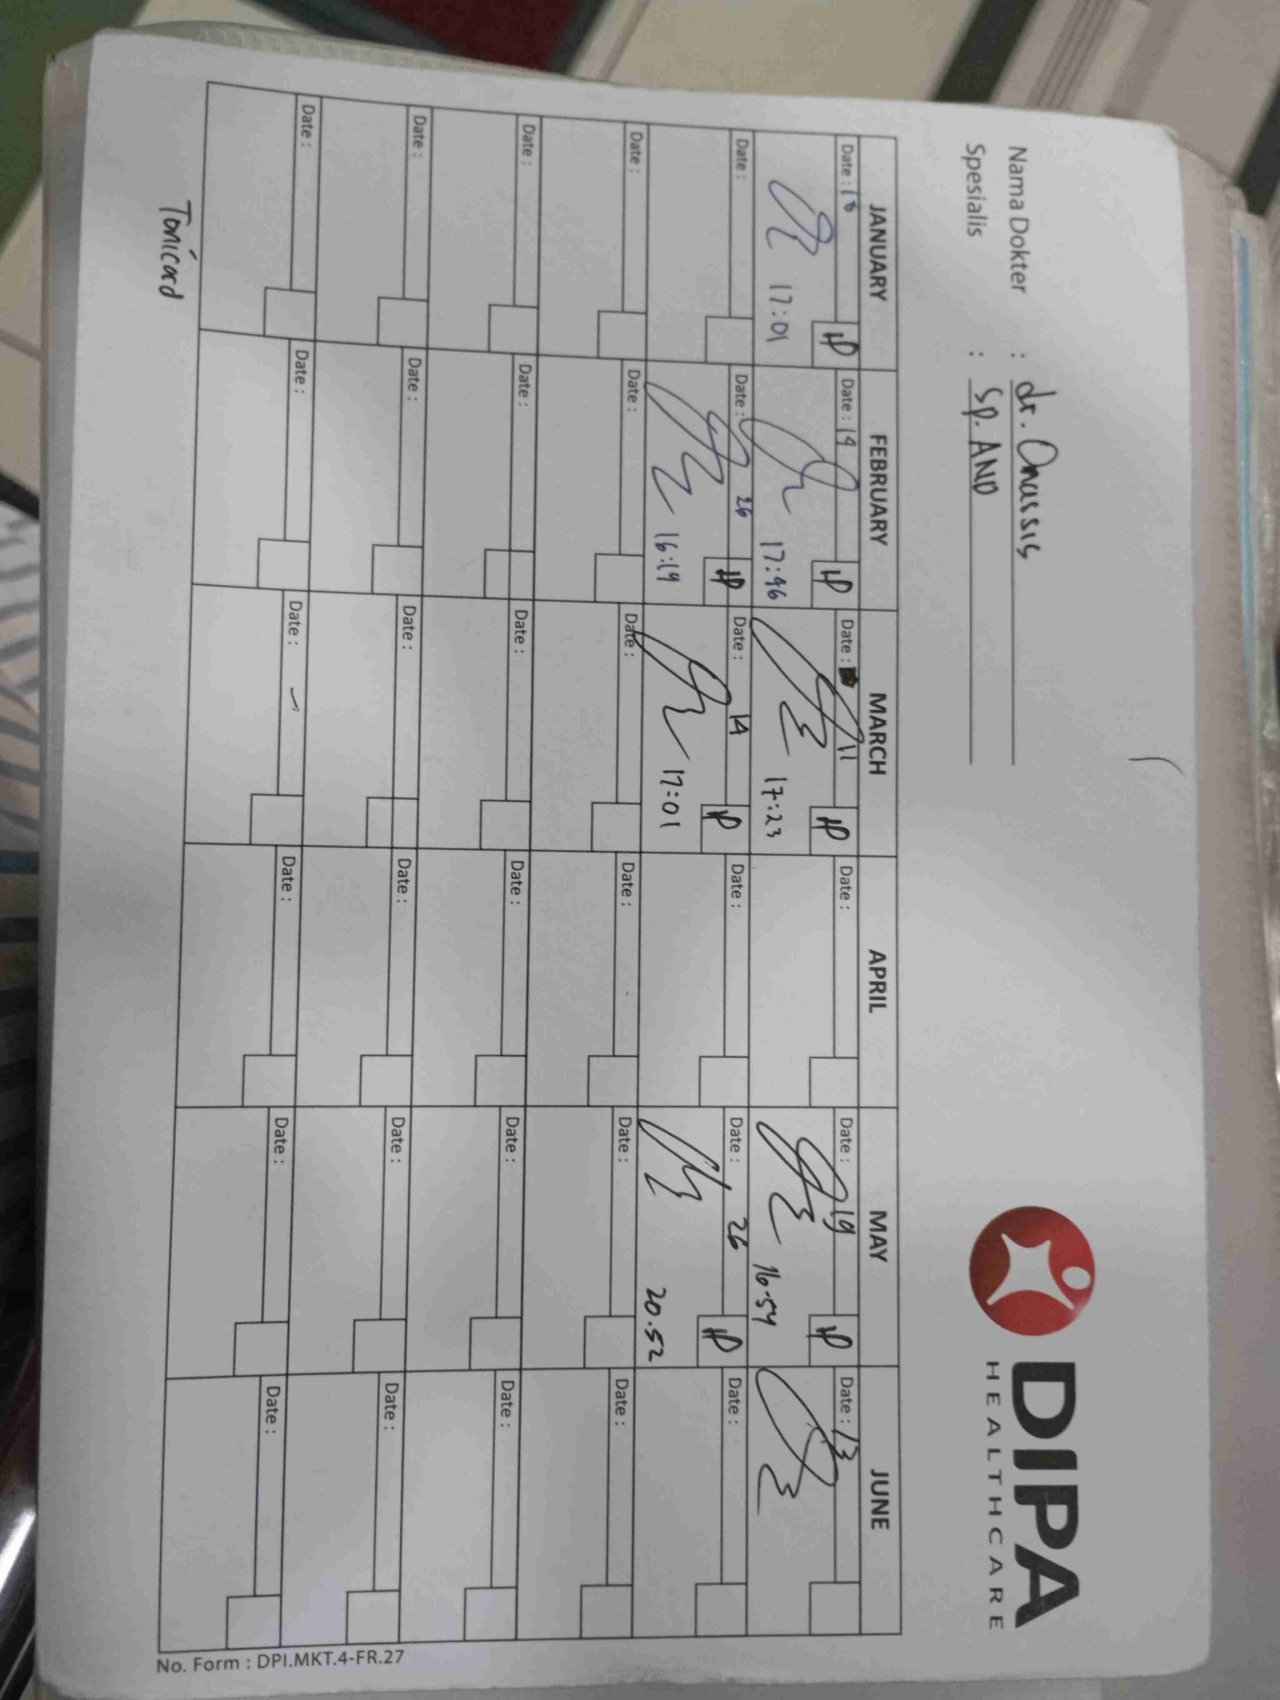 DIPA
HEALTHCARE
Nama Dokter : dr. Onassis
Spesialis : Sp. AND
JANUARY FEBRUARY MARCH APRIL MAY JUNE
Date : 18 Date : 19 Date : 11 Date : Date : 19 Date : 13
17:01 17:46 17:23 16.54
Date : Date : 26 Date : 14 Date : Date : 26 Date :
16:19 17:01 20.52
Date : Date : Date : Date : Date : Date :
Date : Date : Date : Date : Date : Date :
Date : Date : Date : Date : Date : Date :
Date : Date : Date : Date : Date : Date :
Tonicard
No. Form : DPI.MKT.4-FR.27